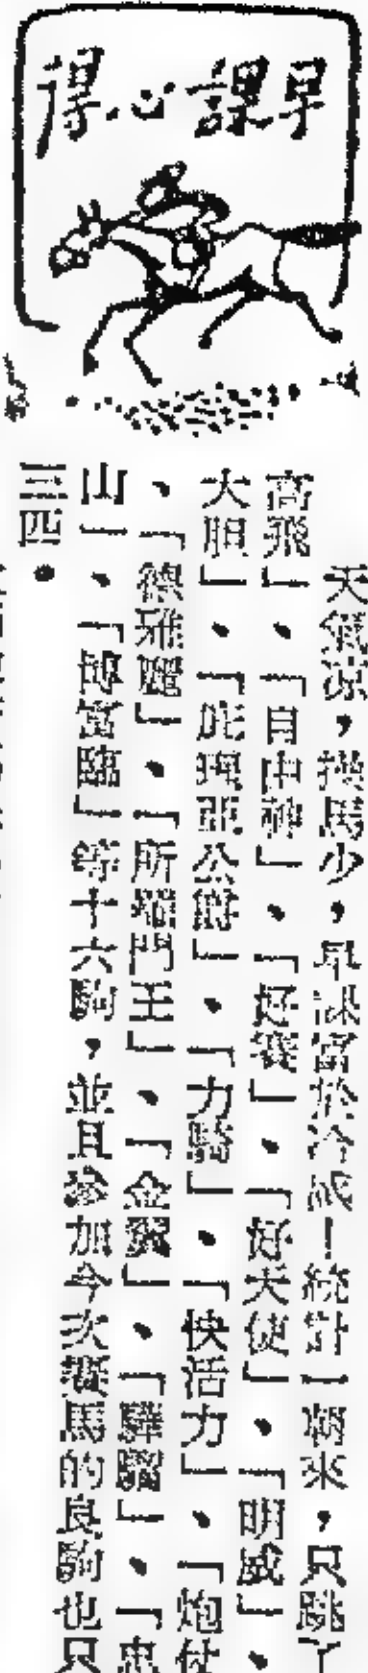 早課心得
天氣涼，操馬少，早課富於冷感！統計一朝來，只跳了
高飛」、「自由神」、「好賽」、「好天使」、「明威」、
大胆」、「庇理亞公爵」、「力騎」、「快活力」、「炮仗
、「德雅麗」、「所羅門王」、「金翼」、「驊騮」、「忠
山」、「博富臨」等十六駒，並且參加今次賽馬的良駒也只
三四。